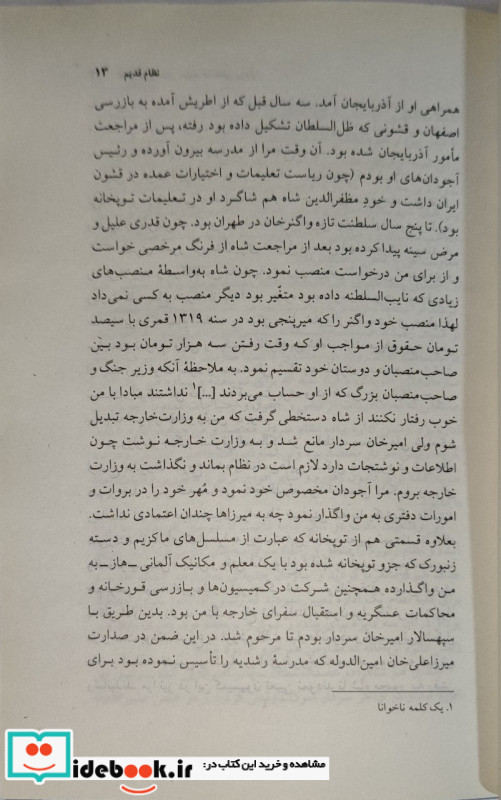 نظام قدیم   ۱۳
همراهی او از آذربایجان آمد. سه سال قبل که از اطریش آمده به بازرسی
اصفهان و قشونی که ظل‌السلطان تشکیل داده بود رفته، پس از مراجعت
مأمور آذربایجان شده بود. آن وقت مرا از مدرسه بیرون آورده و رئیس
آجودان‌های او بودم (چون ریاست تعلیمات و اختیارات عمده در قشون
ایران داشت و خودِ مظفرالدین شاه هم شاگرد او در تعلیمات توپخانه
بود). تا پنج سال سلطنت تازه واگنرخان در طهران بود. چون قدری علیل و
مرض سینه پیدا کرده بود بعد از مراجعت شاه از فرنگ مرخصی خواست
و از برای من درخواست منصب نمود. چون شاه به‌واسطهٔ منصب‌های
زیادی که نایب‌السلطنه داده بود متغیّر بود دیگر منصب به کسی نمی‌داد
لهذا منصب خود واگنر را که میرپنجی بود در سنه ۱۳۱۹ قمری با سیصد
تومان حقوق از مواجب او که وقت رفتن سه هزار تومان بود بین
صاحب‌منصبان و دوستان خود تقسیم نمود. به ملاحظهٔ آنکه وزیر جنگ و
صاحب‌منصبان بزرگ که از او حساب می‌بردند [...]۱ نداشتند مبادا با من
خوب رفتار نکنند از شاه دستخطی گرفت که من به وزارت‌خارجه تبدیل
شوم ولی امیرخان سردار مانع شد و به وزارت خارجه نوشت چون
اطلاعات و نوشتجات دارد لازم است در نظام بماند و نگذاشت به وزارت
خارجه بروم. مرا آجودان مخصوص خود نمود و مُهر خود را در بروات و
امورات دفتری به من واگذار نمود چه به میرزاها چندان اعتمادی نداشت.
بعلاوه قسمتی هم از توپخانه که عبارت از مسلسل‌های ماکزیم و دسته
زنبورک که جزو توپخانه شده بود با یک معلم و مکانیک آلمانی ـ‌هازـ به
من واگذارده همچنین شرکت در کمیسیون‌ها و بازرسی قورخانه و
محاکمات عسگریه و استقبال سفرای خارجه با من بود. بدین طریق با
سپهسالار امیرخان سردار بودم تا مرحوم شد. در این ضمن در صدارت
میرزاعلی‌خان امین‌الدوله که مدرسهٔ رشدیه را تأسیس نموده بود برای
۱. یک کلمه ناخوانا
مشاهده و خرید این کتاب در:
idebook.ir